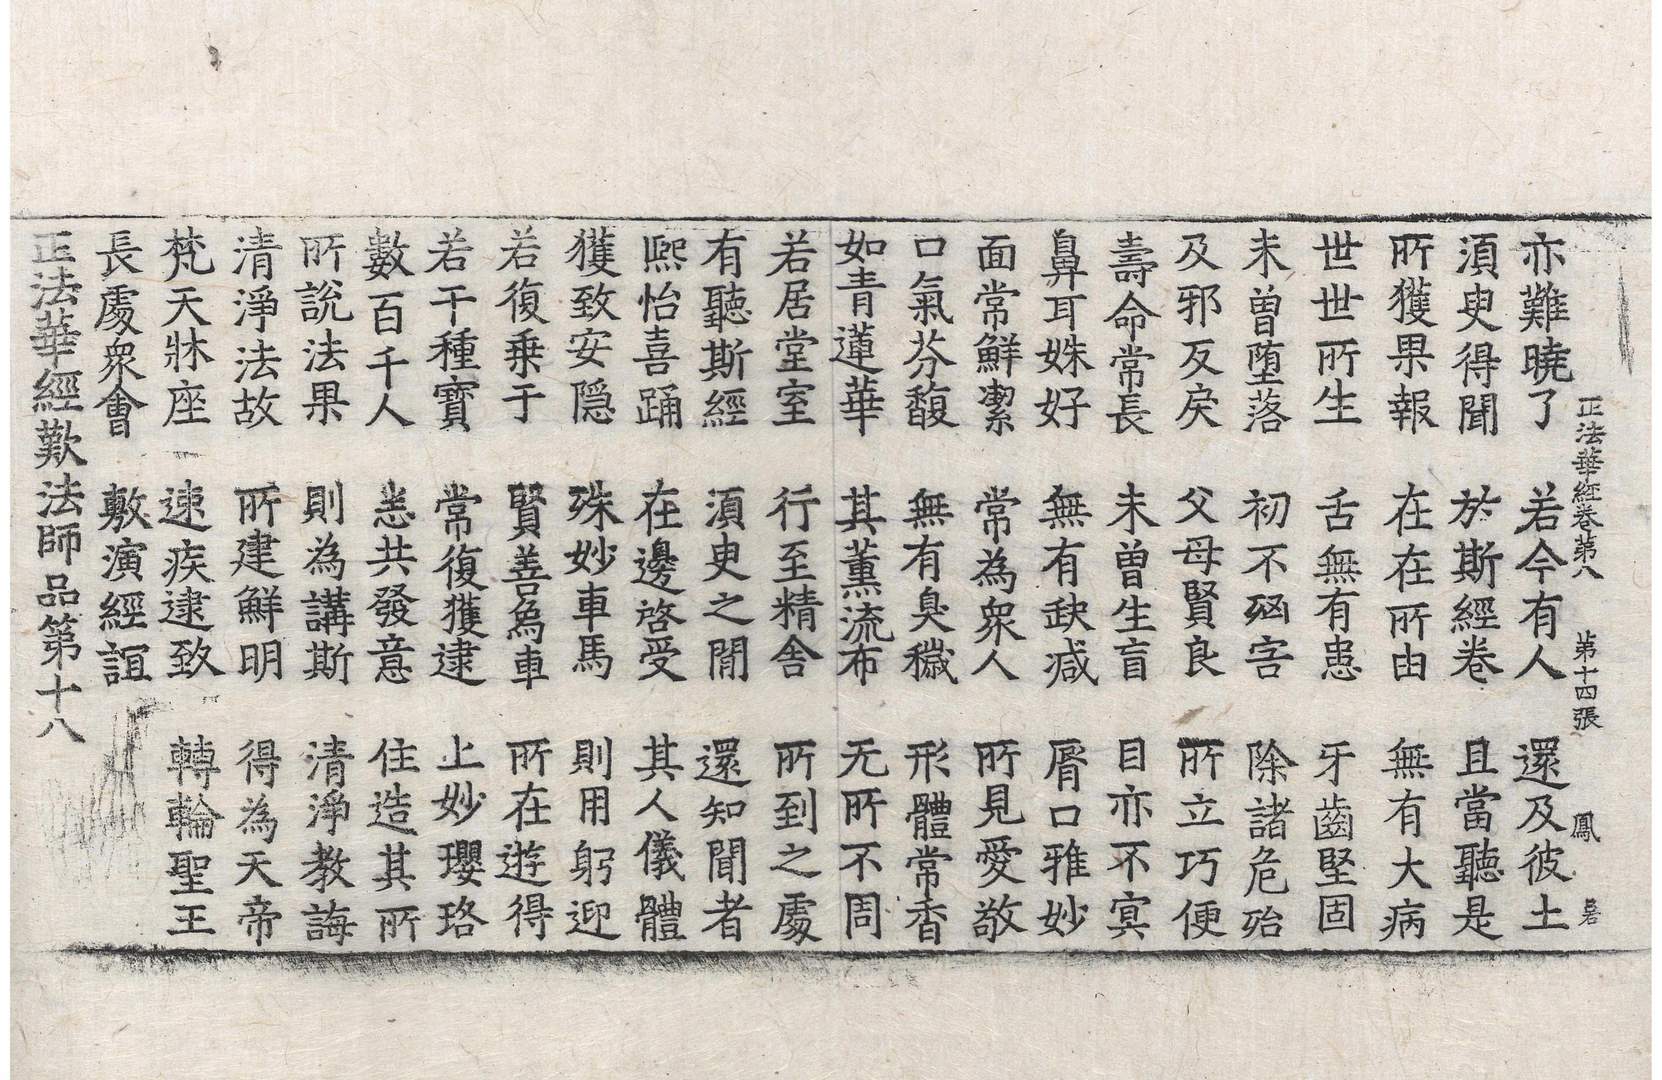 正法華経卷第八　第十四張　鳳
亦難曉了　若今有人　還及彼土
湏臾得聞　於斯經卷　且當聽是
所獲果報　在在所由　無有大病
世世所生　舌無有患　牙齒堅固
未曽堕落　初不㓙害　除諸危殆
及邪反戾　父母賢良　所立巧便
壽命常長　未曽生盲　目亦不冥
鼻耳姝好　無有缺减　脣口雅妙
面常鮮潔　常為衆人　所見愛敬
口氣芬馥　無有臭穢　形體常香
如青蓮華　其薫流布　无所不周
若居堂室　行至精舎　所到之處
有聽斯經　湏臾之間　還知聞者
熈怡喜踊　在邊啓受　其人儀體
獲致安隠　殊妙車馬　則用躬迎
若復乗于　賢善烏車　所在遊得
若干種寳　常復獲逮　上妙瓔珞
數百千人　恙共發意　住造其所
所說法果　則為講斯　清淨教誨
清淨法故　所建鮮明　得為天帝
梵天牀座　速疾逮致　轉輪聖王
長處衆會　敷演經誼
正法華經歎法師品第十八